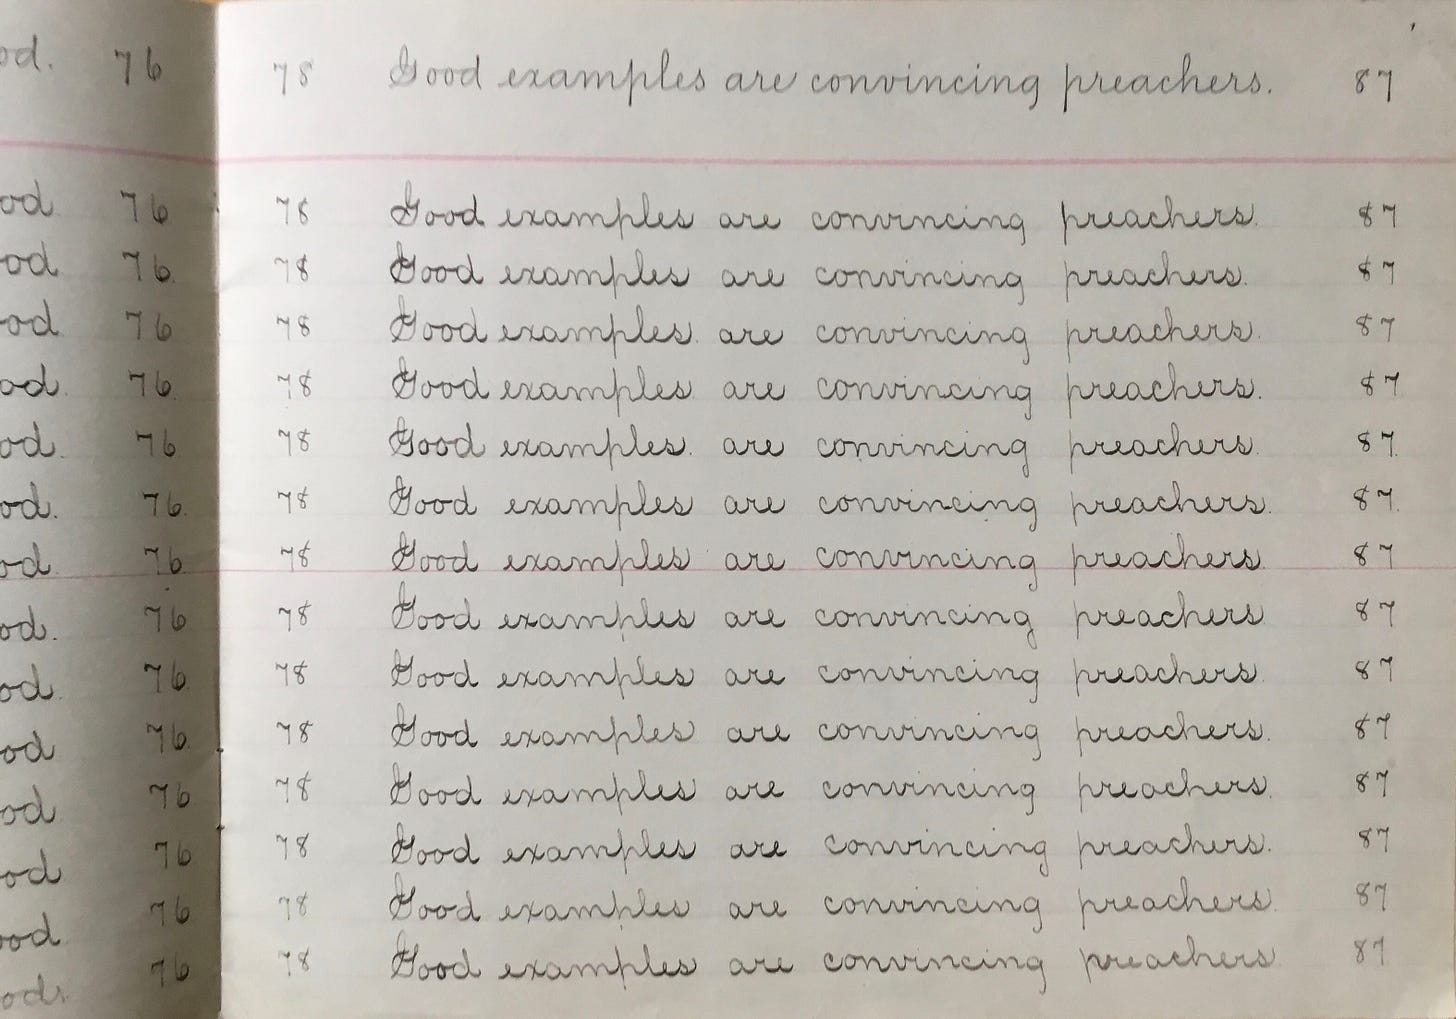 od. 76
od 76
od 76.
od 76
od. 76.
od. 76
od. 76.
od. 76.
od. 76
od. 76.
od 76.
od 76
od 76
ood 76
76
78 Good examples are convincing preachers. 87
78 Good examples are convincing preachers. 87
78 Good examples are convincing preachers. 87
78 Good examples are convincing preachers. 87
78 Good examples are convincing preachers. 87
78 Good examples are convincing preachers. 87.
78 Good examples are convincing preachers. 87.
78 Good examples are convincing preachers. 87
78 Good examples are convincing preachers 87
78 Good examples are convincing preachers. 87
78 Good examples are convincing preachers. 87
78 Good examples are convincing preachers. 87
78 Good examples are convincing preachers. 87
78 Good examples are convincing preachers. 87
78 Good examples are convincing preachers 87